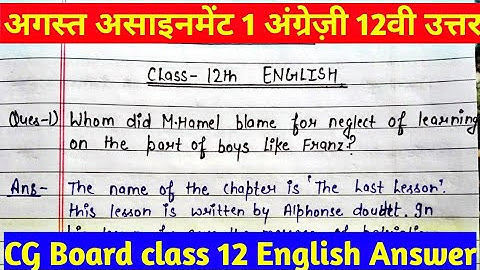 अगस्त असाइनमेंट 1 अंग्रेज़ी 12वी उत्तर
Class- 12th ENGLISH
Ques-1) Whom did M.Hamel blame for neglect of learning
on the part of boys like Franz?
Ans- The name of the chapter is 'The Last Lesson'.
this lesson is written by Alphonse doudet. In
CG Board class 12 English Answer